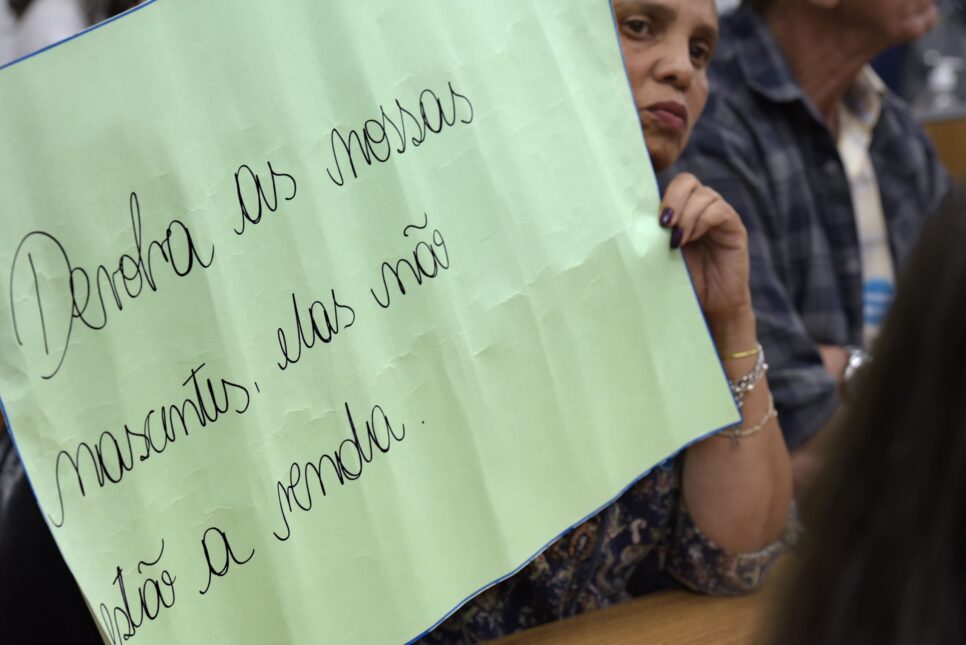 Devolva as nossas
nascentes, elas não
estão a venda.